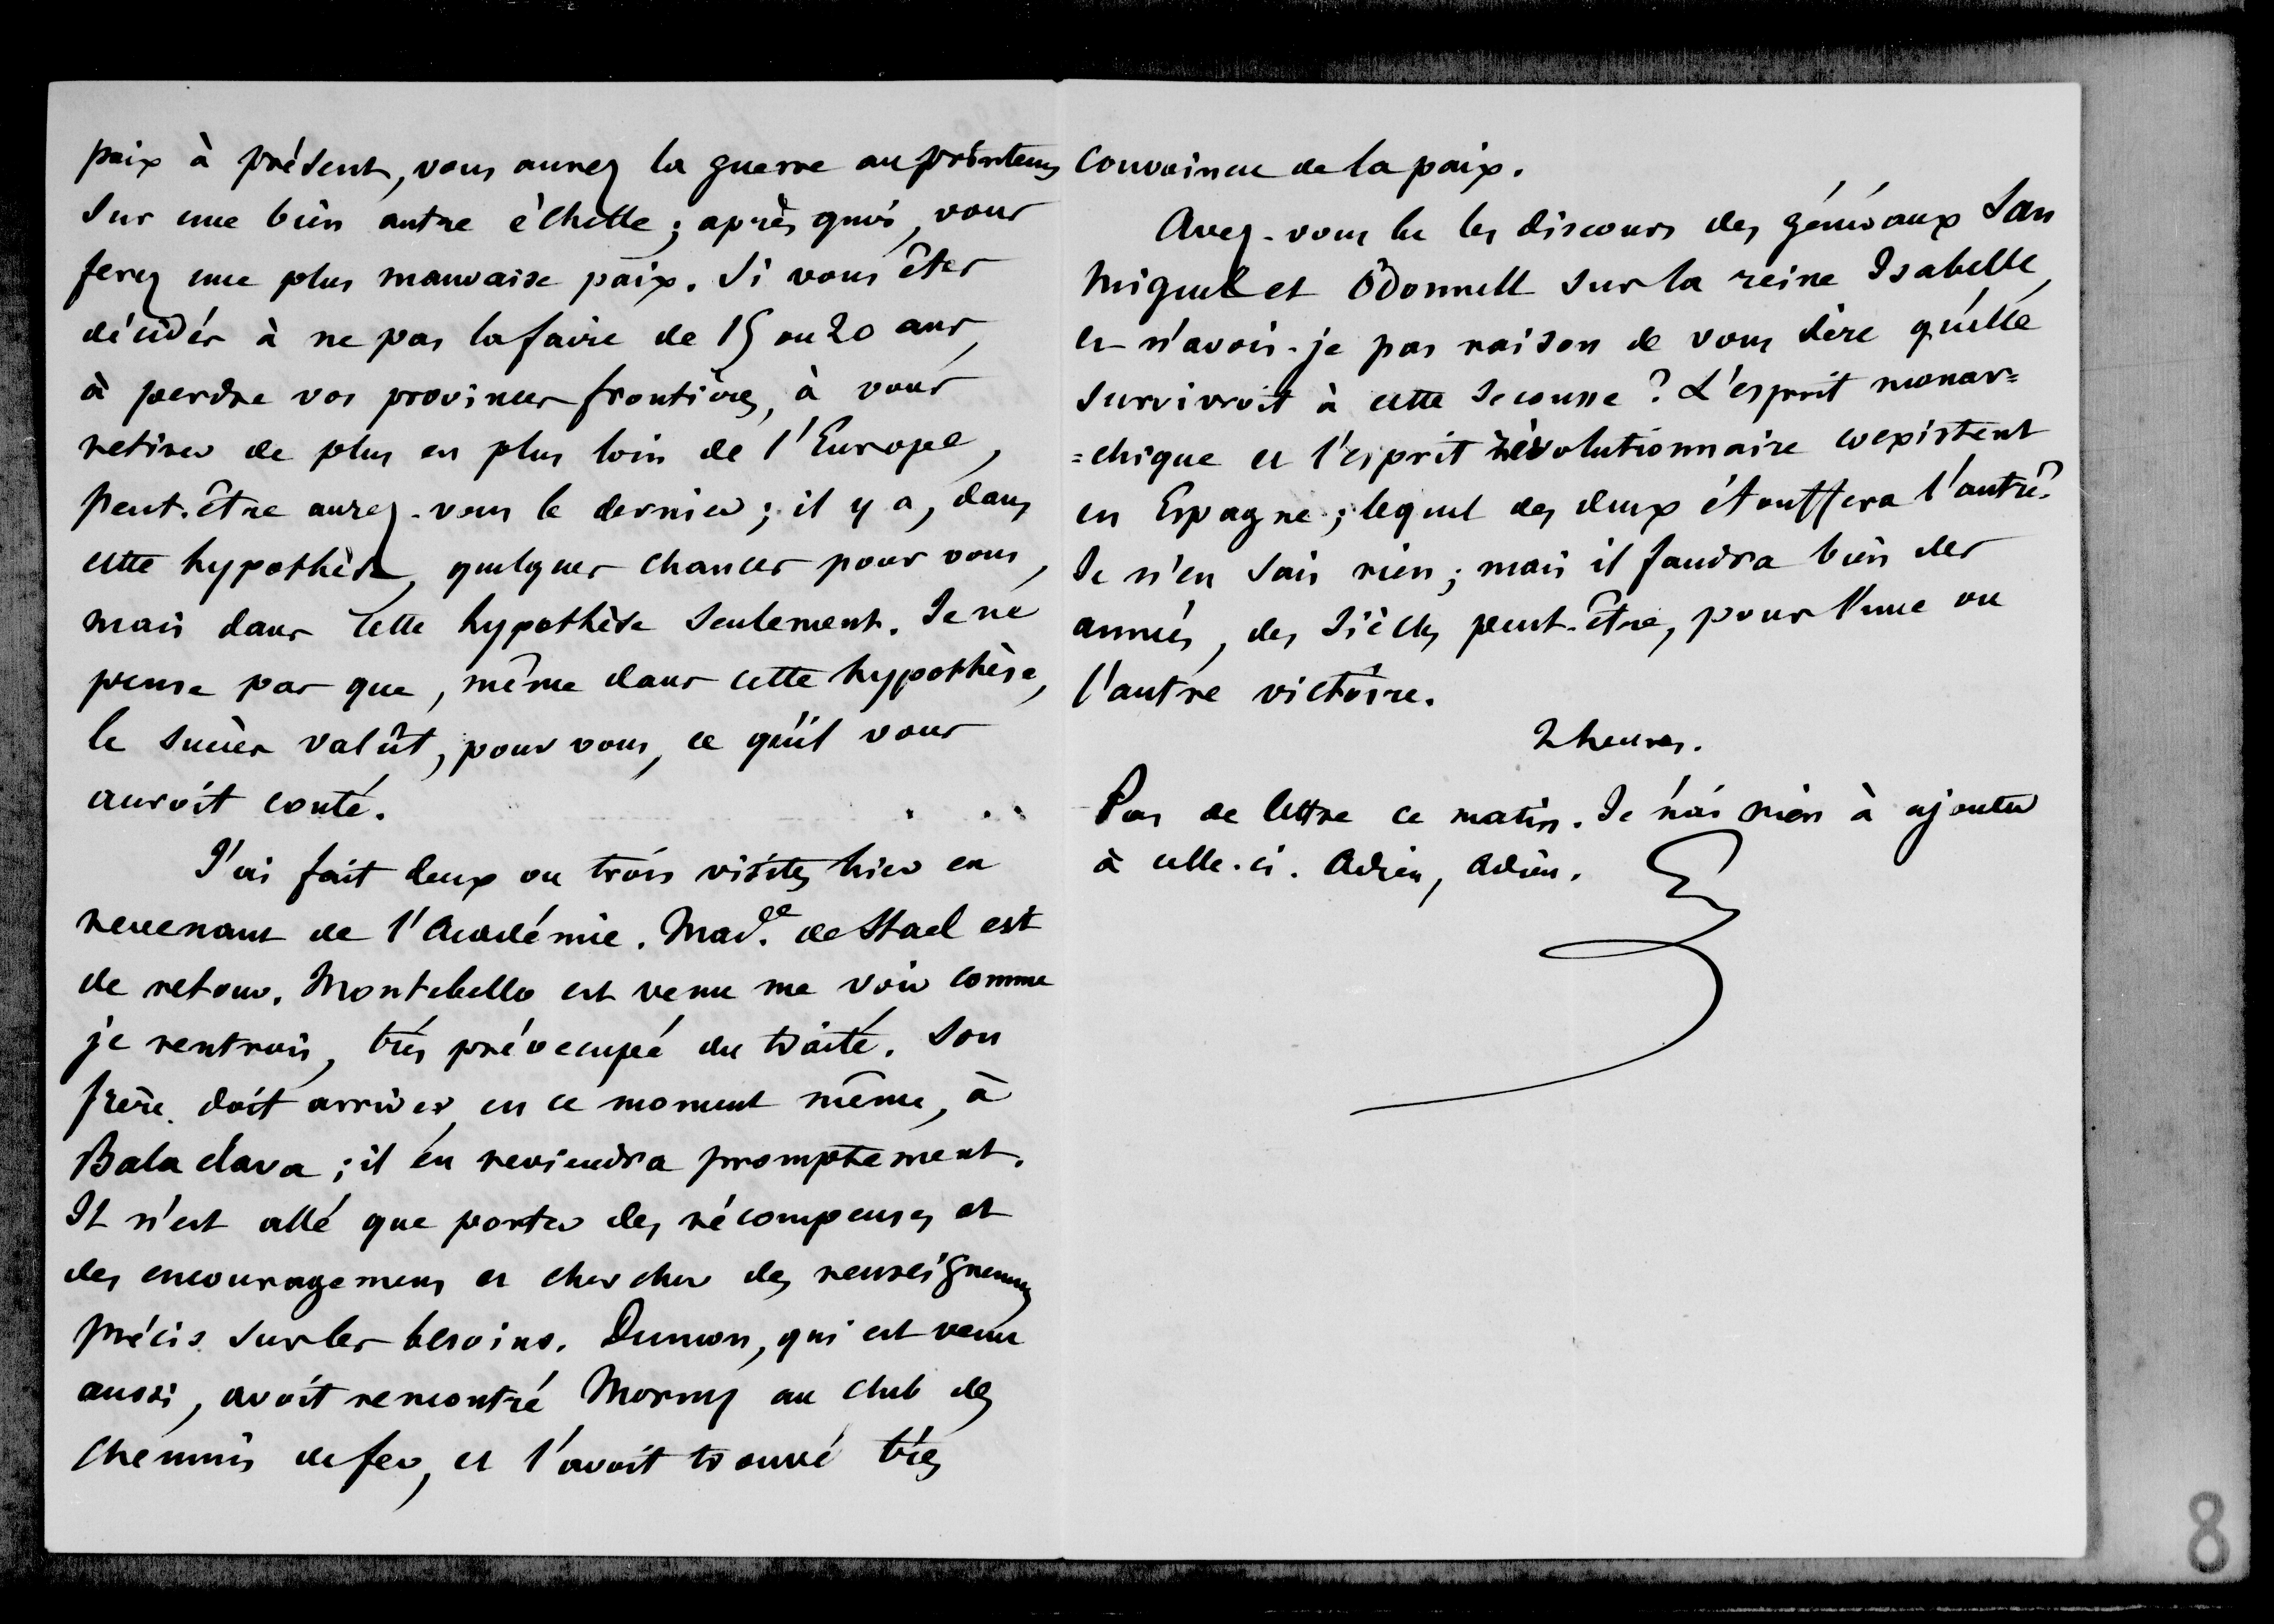 paix à présent, vous aurez la guerre au printems
sur une bien autre échelle ; après quoi, vous
ferez une plus mauvaise paix. Si vous êtes
décidés à ne pas la faire de 15 ou 20 ans,
à perdre vos provinces frontières, à vous
retirer de plus en plus loin de l'Europe,
peut-être aurez-vous le dernier ; il y a, dans
cette hypothèse, quelques chances pour vous,
mais dans cette hypothèse seulement. Je ne
pense pas que, même dans cette hypothèse,
le succès valût, pour vous, ce qu'il vous
auroit couté.
J'ai fait deux ou trois visites hier en
revenant de l'Académie. Made. de Stael est
de retour. Montebello est venu me voir comme
je rentrois, très préoccupé du traité. Son
frère doit arriver, en ce moment même, à
Balaclava ; il en reviendra promptement.
Il n'est allé que porter des récompenses et
des encouragemens et chercher des renseignemens
précis sur les besoins. Dumon, qui est venu
aussi, avoit rencontré Morny au club des
chemins de fer, et l'avoit trouvé très
convaincu de la paix.
Avez-vous lu les discours des généraux San
Miguel et O'donnell sur la reine Isabelle,
et n'avois-je pas raison de vous dire qu'elle
survivroit à cette secousse ? L'esprit monar=
=chique et l'esprit révolutionnaire coexistent
en Espagne ; lequel des deux étouffera l'autre ?
Je n'en sais rien ; mais il faudra bien des
années, des siècles peut-être, pour l'une ou
l'autre victoire.
2 heures.
Pas de lettre ce matin. Je n'ai rien à ajouter
à celle-ci. Adieu, Adieu.
8